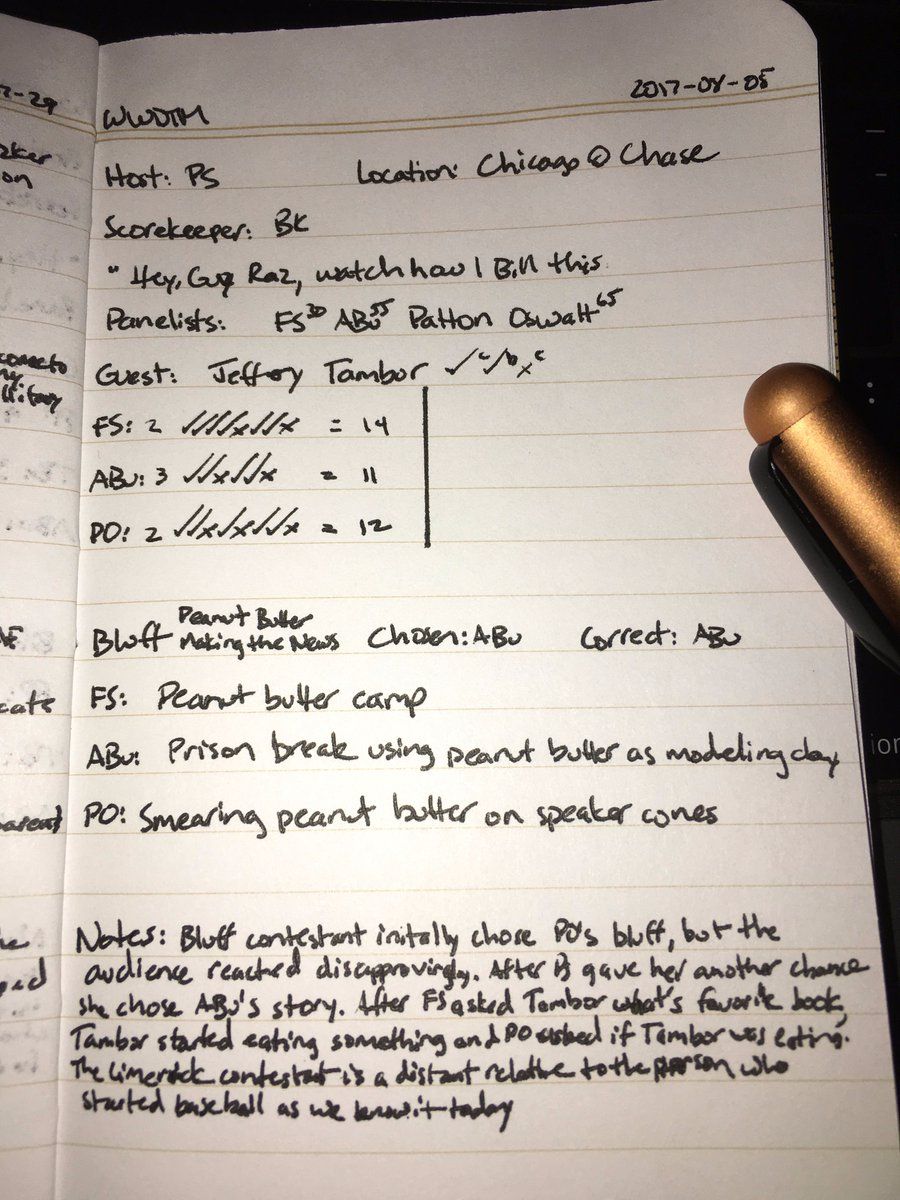 2017-08-05
WWDTM
Host: PS Location: Chicago @ Chase
Scorekeeper: BK
"Hey, Guy Raz, watch how I Bill this.
Panelists: FS30 ABu55 Patton Oswalt65
Guest: Jeffrey Tambor ✓c ✓b xc
FS: 2 ✓✓✓✓x✓✓x = 14
ABu: 3 ✓✓x✓✓x = 11
PO: 2 ✓✓x✓x✓✓x = 12
Bluff Peanut Butter
Making the News Chosen: ABu Correct: ABu
FS: Peanut butter camp
ABu: Prison break using peanut butter as modeling clay
PO: Smearing peanut butter on speaker cones
Notes: Bluff contestant initally chose PO's bluff, but the
audience reached disapprovingly. After PS gave her another chance
she chose ABu's story. After FS asked Tambor what's favorite book,
Tambor started eating something and PO asked if Tambor was eating.
The limerick contestant is a distant relative to the person who
started baseball as we know it today